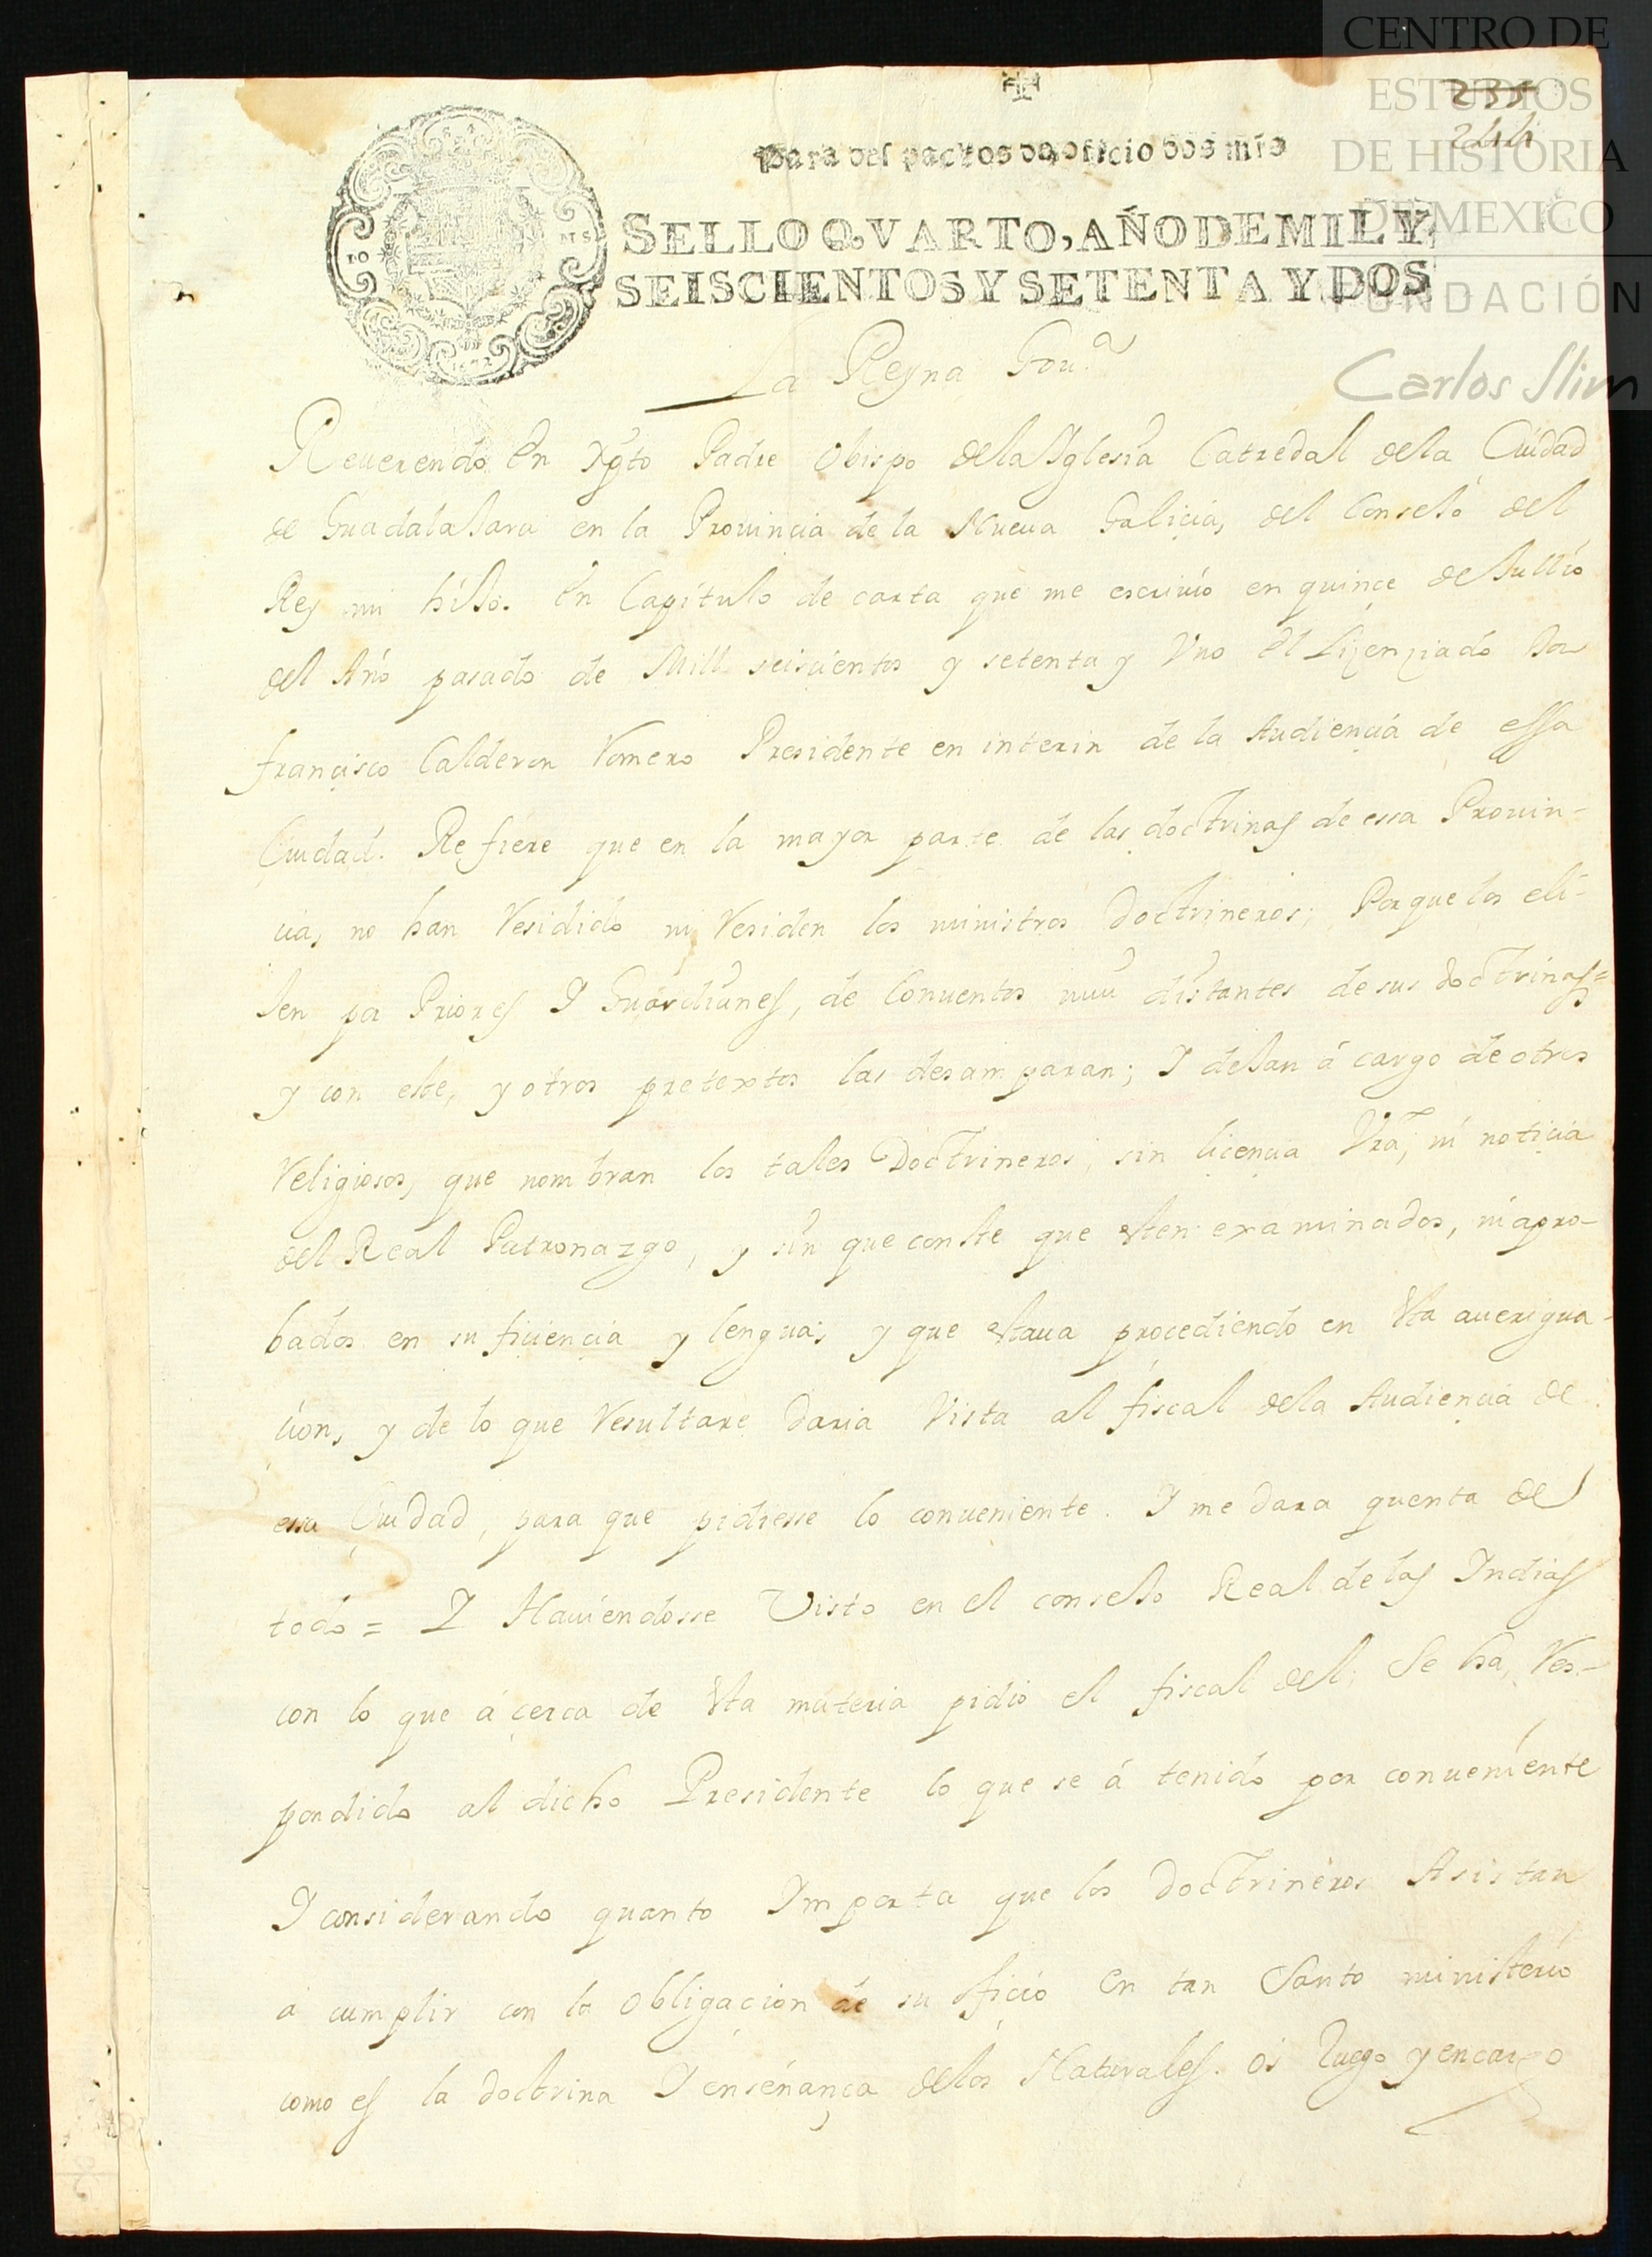 CENTRO DE
ESTUDIOS
DE HISTORIA
DE MEXICO
FUNDACIÓN
Carlos Slim
235
244
para despachos de oficio dos mrs
SELLO QVARTO, AÑO DE MIL Y
SEISCIENTOS Y SETENTA Y DOS
La Reyna Gou.ª
Reuerendo En Xpto Padre Obispo dela Yglesia Catredal dela Ciudad
de GuadalaJara en la Prouincia de la Nueua Galicia, del ConseJo del
Rey mi hiJo. En Capitulo de carta que me escriuio en quinçe de Jullio
del Año pasado de Mill seiscientos y setenta y Vno El Liçençiado Don
francisco Calderon Romero Presidente en interin de la Audiençia de essa
Ciudad. Refiere que en la mayor parte de las doctrinas de essa Prouin-
cia, no han Residido ni Residen los ministros Doctrineros; Porque los eli-
Jen por Priores Y Guardianes, de Conuentos mui distantes de sus Doctrinas=
y con este, y otros pretextos las desamparan; Y deJan á cargo de otros
Religiosos, que nombran los tales Doctrineros, sin liçencia Vrã, ni notiçia
del Real Patronazgo, y sin que conste que esten examinados, ni apro-
bados en sufiçiençia y lengua; y que estaua procediendo en esta auerigua-
cion, y de lo que Resultare daria Vista al fiscal dela Audiençia de
essa Ciudad, para que pidiesse lo conueniente. Y me dara quenta de
todo = Y Hauiendosse Visto en el conseJo Real de las Indias
con lo que á çerca de esta materia pidio el fiscal del; Se ha Res-
pondido al dicho Presidente lo que se á tenido por conueniente
Y considerando quanto Importa que los Doctrineros Asistan
a cumplir con la obligaçion de su ofiçio en tan Santo ministerio
como es la doctrina Y enseñança delos Naturales. os Ruego y encargo